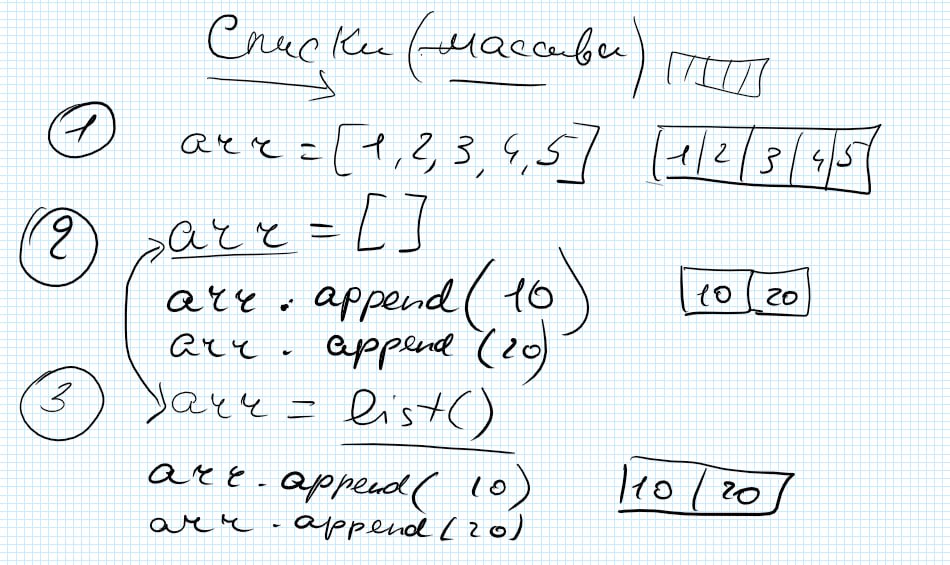 Списки (массиви)
1 arr = [1, 2, 3, 4, 5] 1 2 3 4 5
2 arr = []
arr . append(10) 10 20
arr . append(20)
3 arr = list()
arr . append(10) 10 20
arr . append(20)